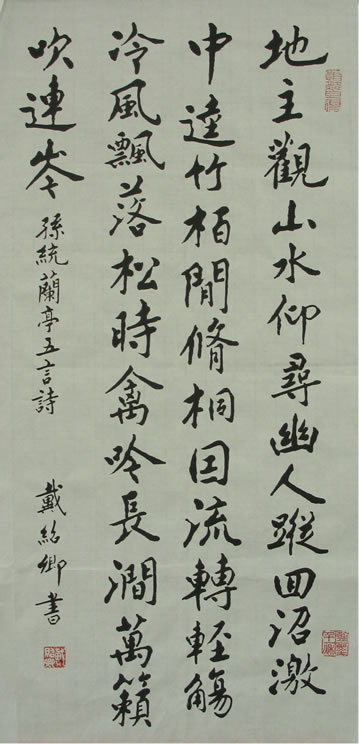 地主觀山水仰尋幽人蹤回沼激
中逵竹柏閒脩桐因流轉輕觴
冷風飄落松時禽吟長澗萬籟
吹連岑
孫統蘭亭五言詩
戴紹卿書